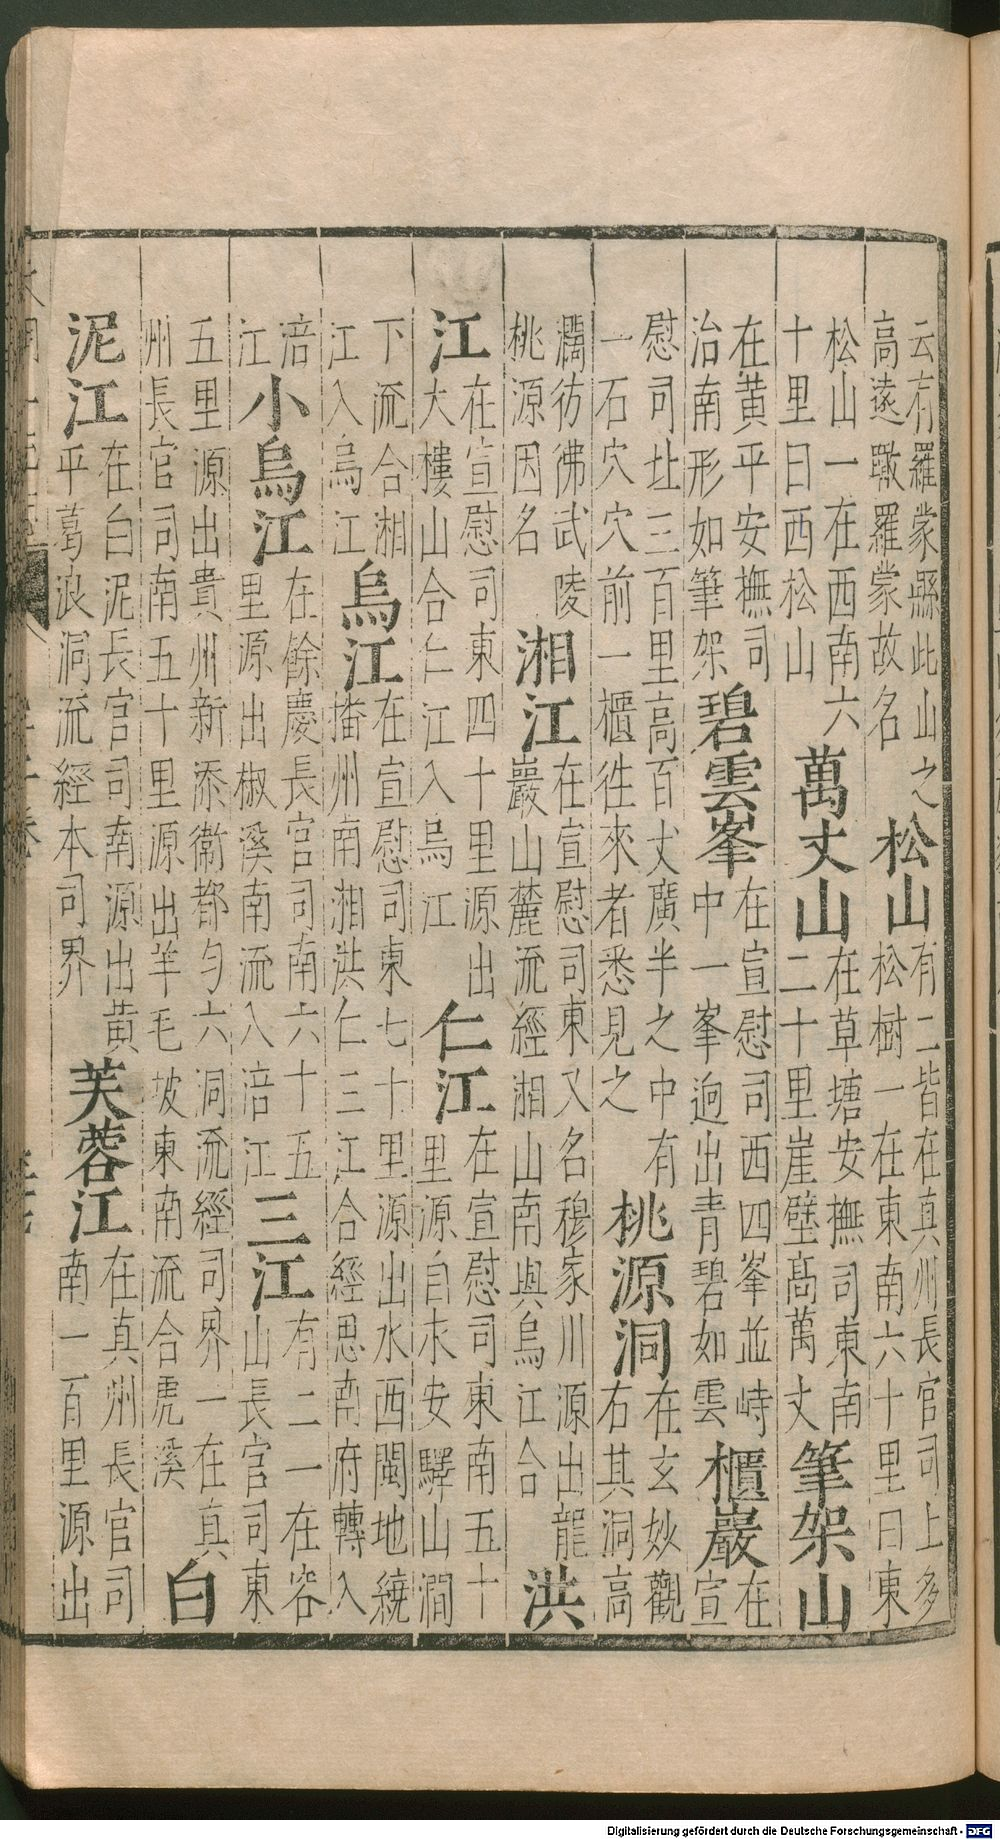 云有羅蒙縣此山之高遠暾羅蒙故名松山有二皆在真州長官司上多松樹一在東南六十里曰東
松山一在西南六十里曰西松山萬丈山在草塘安撫司東南二十里崖壁高萬丈筆架山
在黃平安撫司治南形如筆架碧雲峯在宣慰司西四峯並峙中一峯迥出青碧如雲櫃巖在宣
慰司址三百里高百丈廣半之中有一石穴穴前一櫃徃來者悉見之桃源洞在玄妙觀右其洞高
濶彷彿武陵桃源因名湘江在宣慰司東又名穆家川源出龍巖山麓流經湘山南與烏江合洪
江在宣慰司東四十里源出大樓山合仁江入烏江仁江在宣慰司東南五十里源自永安驛山澗
下流合湘江入烏江烏江在宣慰司東七十里源出水西閩地繞播州南湘洪仁三江合經思南府轉入
涪江小烏江在餘慶長官司南六十五里源出椒溪南流入涪江三江有二一在容山長官司東
五里源出貴州新添衛都勻六洞流經司界一在真州長官司南五十里源出羊毛坡東南流合虎溪白
泥江在白泥長官司南源出黃平葛浪洞流經本司界芙蓉江在真州長官司南一百里源出
Digitalisierung gefördert durch die Deutsche Forschungsgemeinschaft - DFG